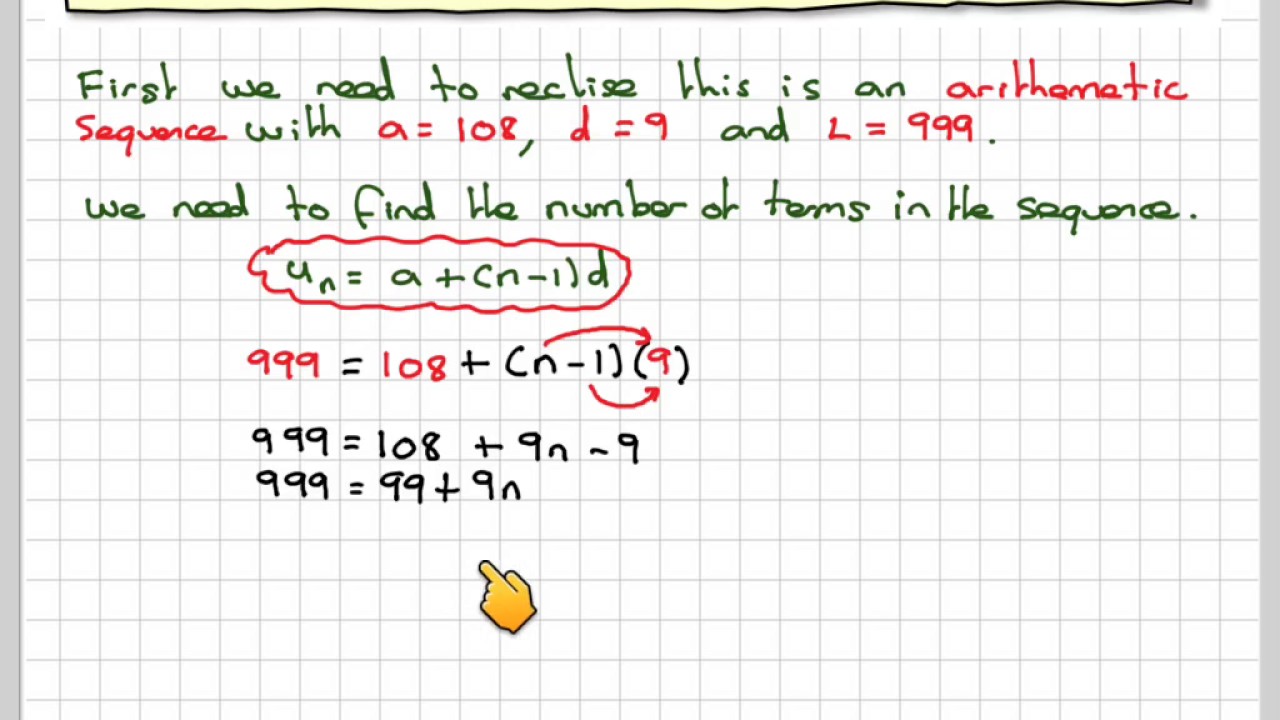 First we need to reclise this is an arithematic
sequence with a = 108, d = 9 and L = 999.
we need to find the number of terms in the sequence.
uₙ = a + (n-1)d
999 = 108 + (n-1)(9)
999 = 108 + 9n - 9
999 = 99 + 9n